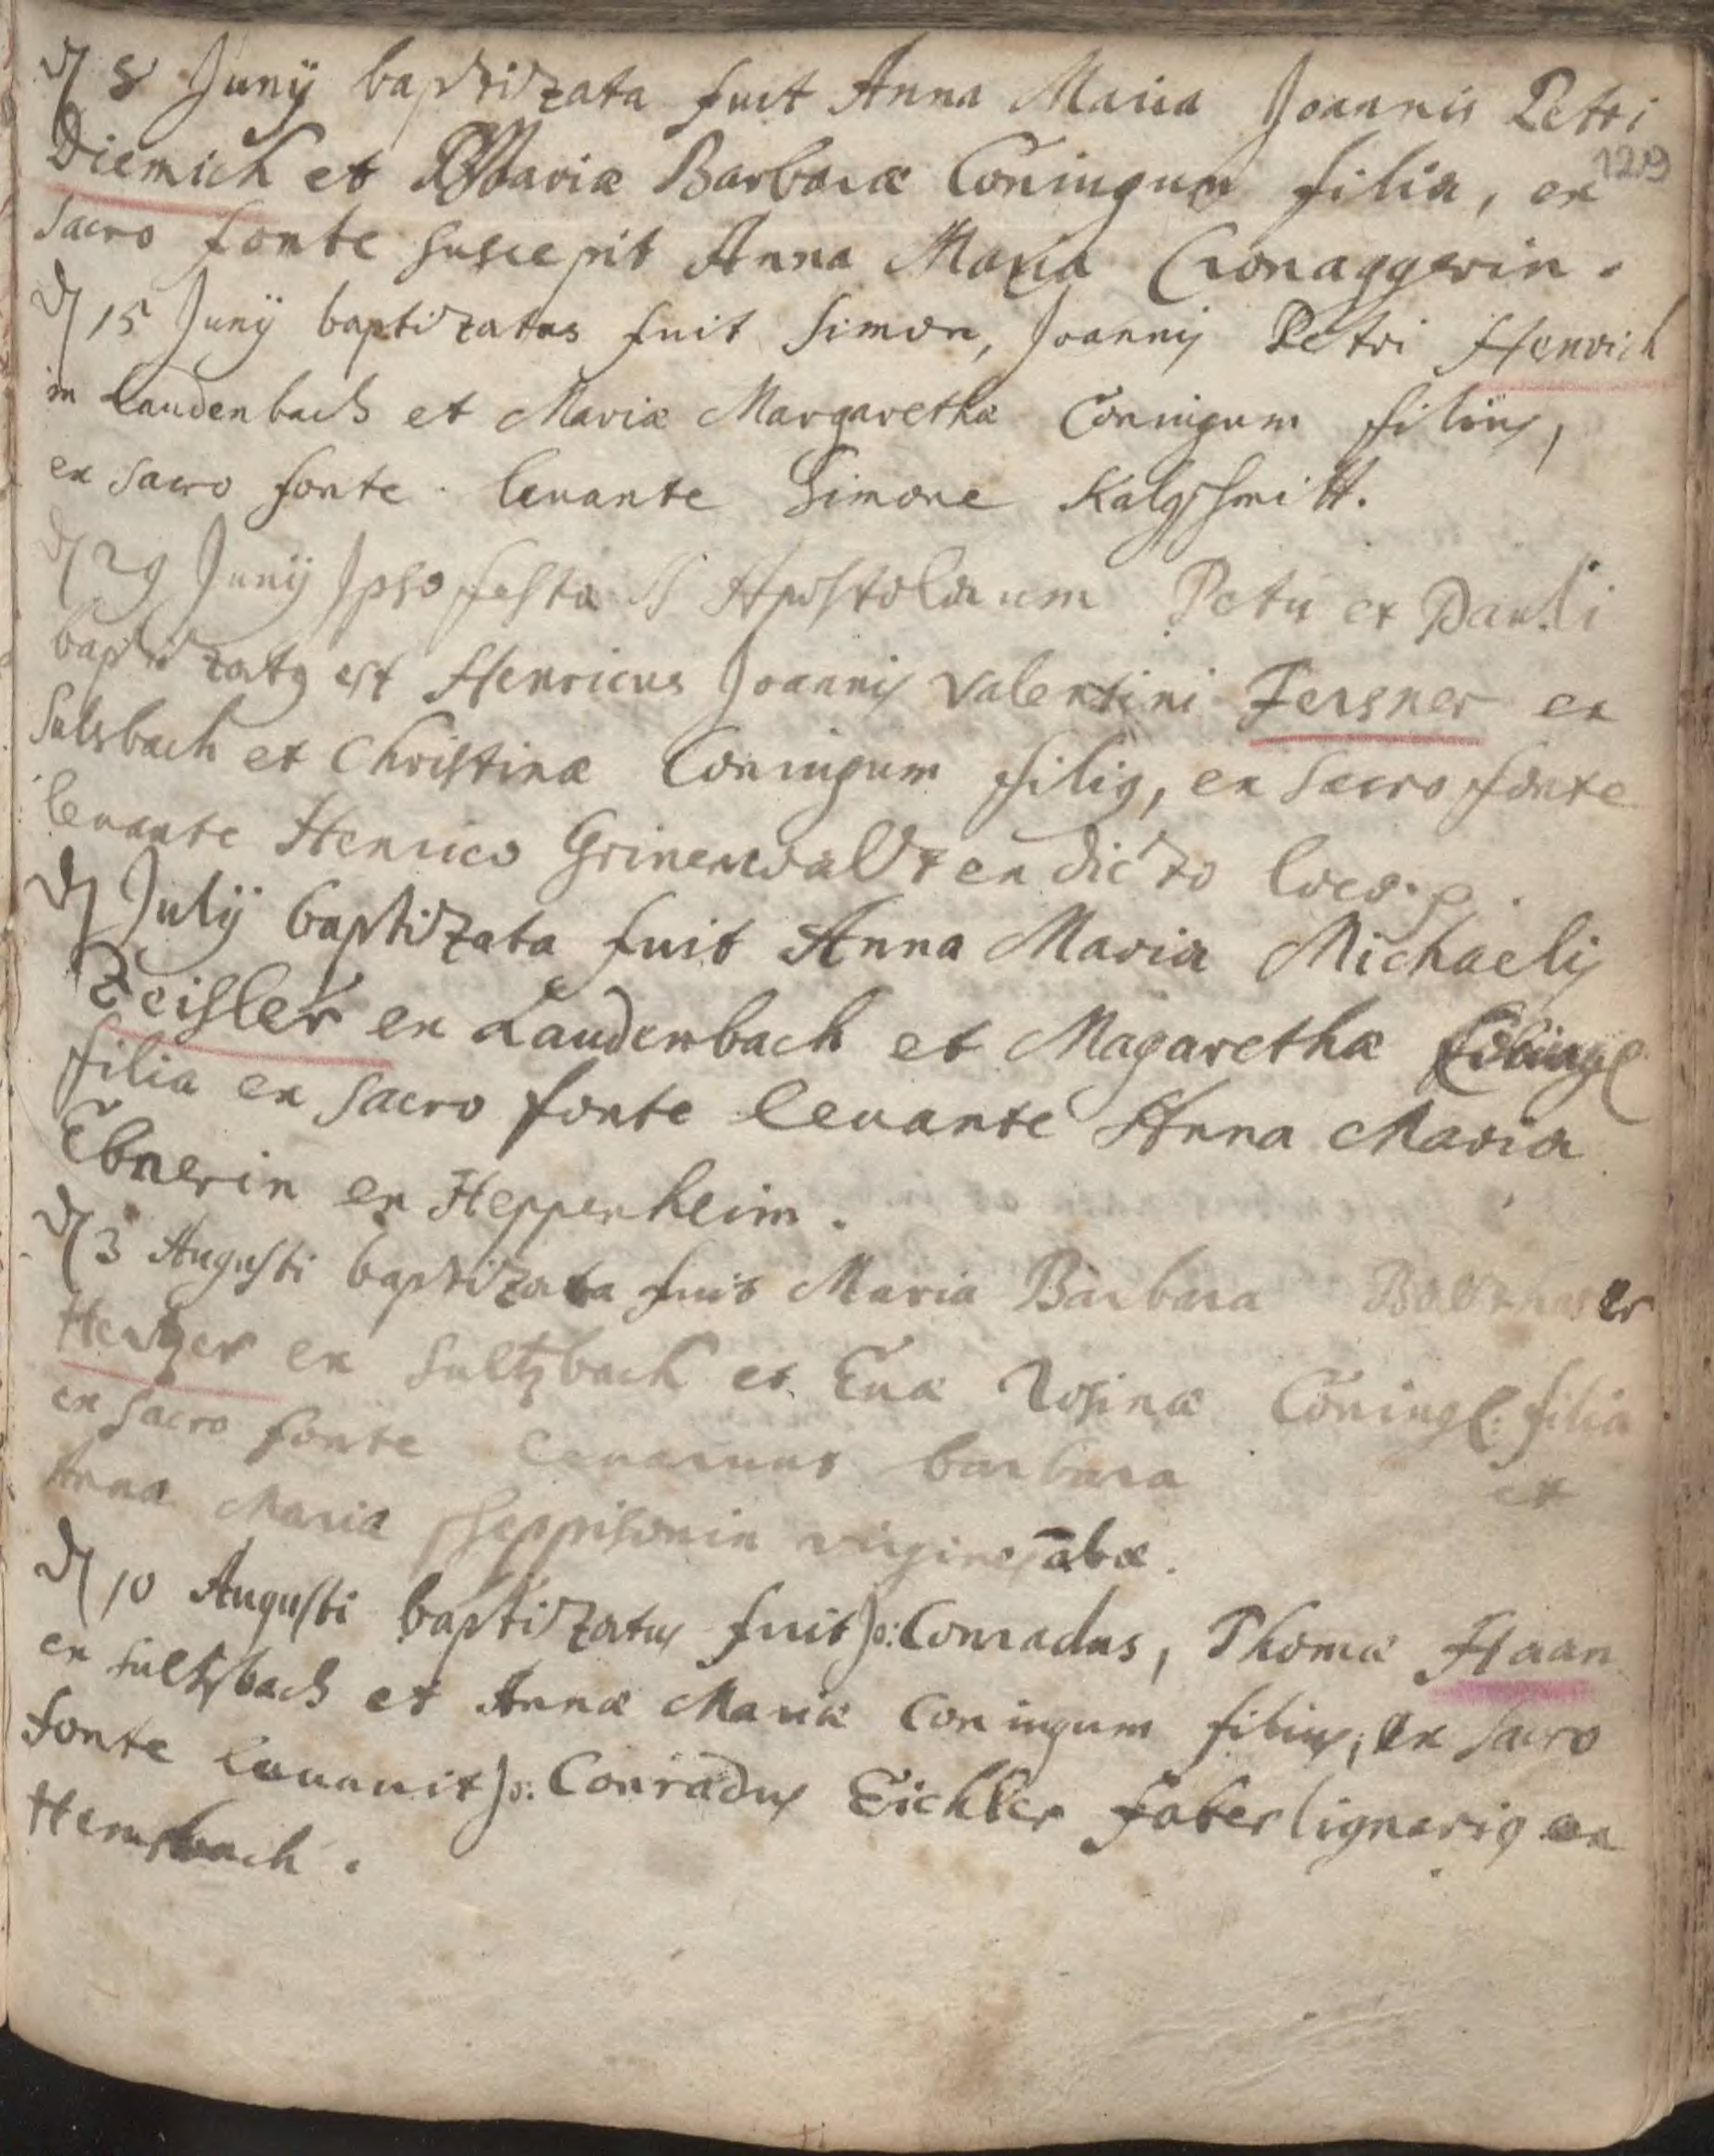 d 8 Junÿ baptizata fuit Anna Maria Joannis Petri
129
Diemich et Mariæ Barbaræ Coniugum filia, ex
sacro fonte suscepit Anna Maria Cronaggerin.
d 15 Junÿ baptizatus fuit Simon, Joannis Petri Henrich
in Laudenbach et Mariæ Margarethæ Coniugum filius,
ex sacro fonte levante Simone Kalgschmitt.
d 29 Junÿ Ipso festo SS Apostolorum Petri et Pauli
baptizatus est Henricus Joannis Valentini Fersner ex
Sulsbach et Christinæ Coniugum filius, ex sacro fonte
levante Henrico Grinenwaldt ex dicto loco.
d Julÿ baptizata fuit Anna Maria Michaelis
Zeisler ex Laudenbach et Magarethæ
filia ex sacro fonte levante Anna Maria
Ebnerin ex Heppenheim.
d 3 Augusti baptizata fuit Maria Barbara
Hertzer ex Sultzbach et Euæ Rosinæ Coniug. filia
ex sacro fonte levarunt barbara et
Anna Maria virgines abæ.
d 10 Augusti baptizatus fuit Jo: Conradus, Thomæ Haan
ex Sultzbach et Annæ Mariæ Coniugum filius, ex sacro
fonte leuauit Jo: Conradus Eichler faber lignarius ex
Hemsbach.